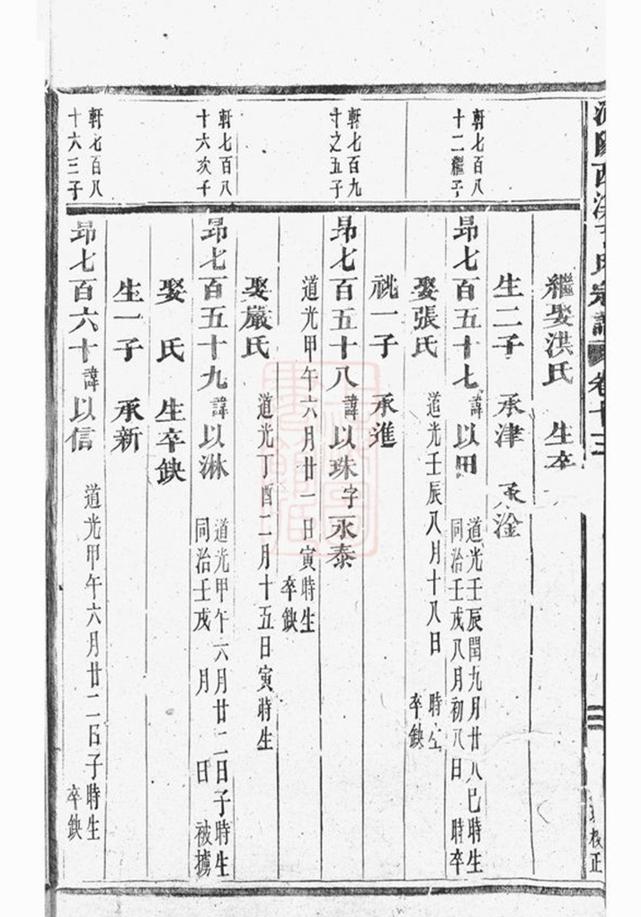 宗譜 卷十三
校正
繼娶洪氏 生卒
生二子 承津 承淦
軒七百八
十二繼子
昻七百五十七 諱 以田 道光壬辰閏九月廿八巳時生
同治壬戌八月初八日 時卒
娶張氏 道光壬辰八月十八日 時生
卒缺
祧一子 承進
軒七百九
十之五子
昻七百五十八 諱 以珠 字 永泰
道光甲午六月廿一日寅時生
卒缺
娶嚴氏 道光丁酉二月十五日寅時生
軒七百八
十六次子
昻七百五十九 諱 以淋 道光甲午六月廿二日子時生
同治壬戌 月 日 被擄
娶 氏 生卒缺
生一子 承新
軒七百八
十六三子
昻七百六十 諱 以信 道光甲午六月廿二日子時生
卒缺